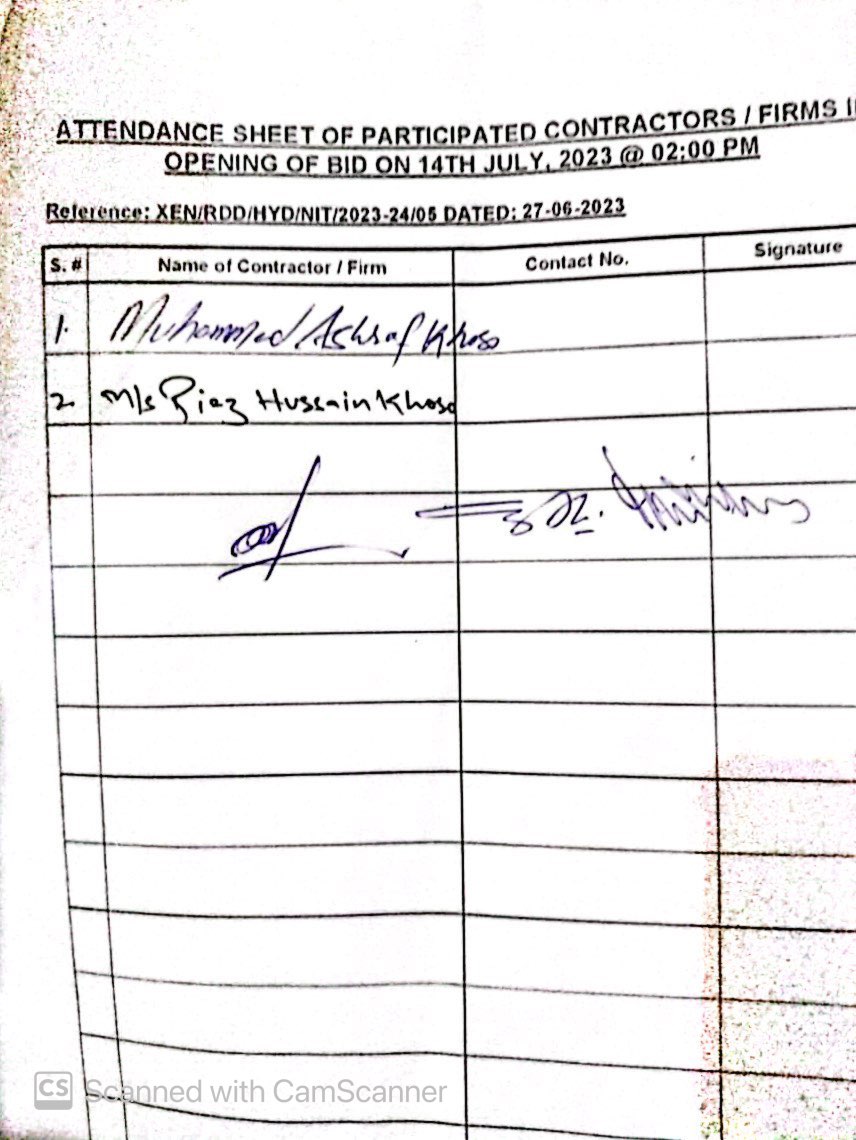 ATTENDANCE SHEET OF PARTICIPATED CONTRACTORS / FIRMS
OPENING OF BID ON 14TH JULY, 2023 @ 02:00 PM
Reference: XEN/RDD/HYD/NIT/2023-24/05 DATED: 27-06-2023
S. # Name of Contractor / Firm Contact No. Signature
1. Muhammed Ashraf Khoso
2. M/s Riaz Hussain Khoso
CS Scanned with CamScanner